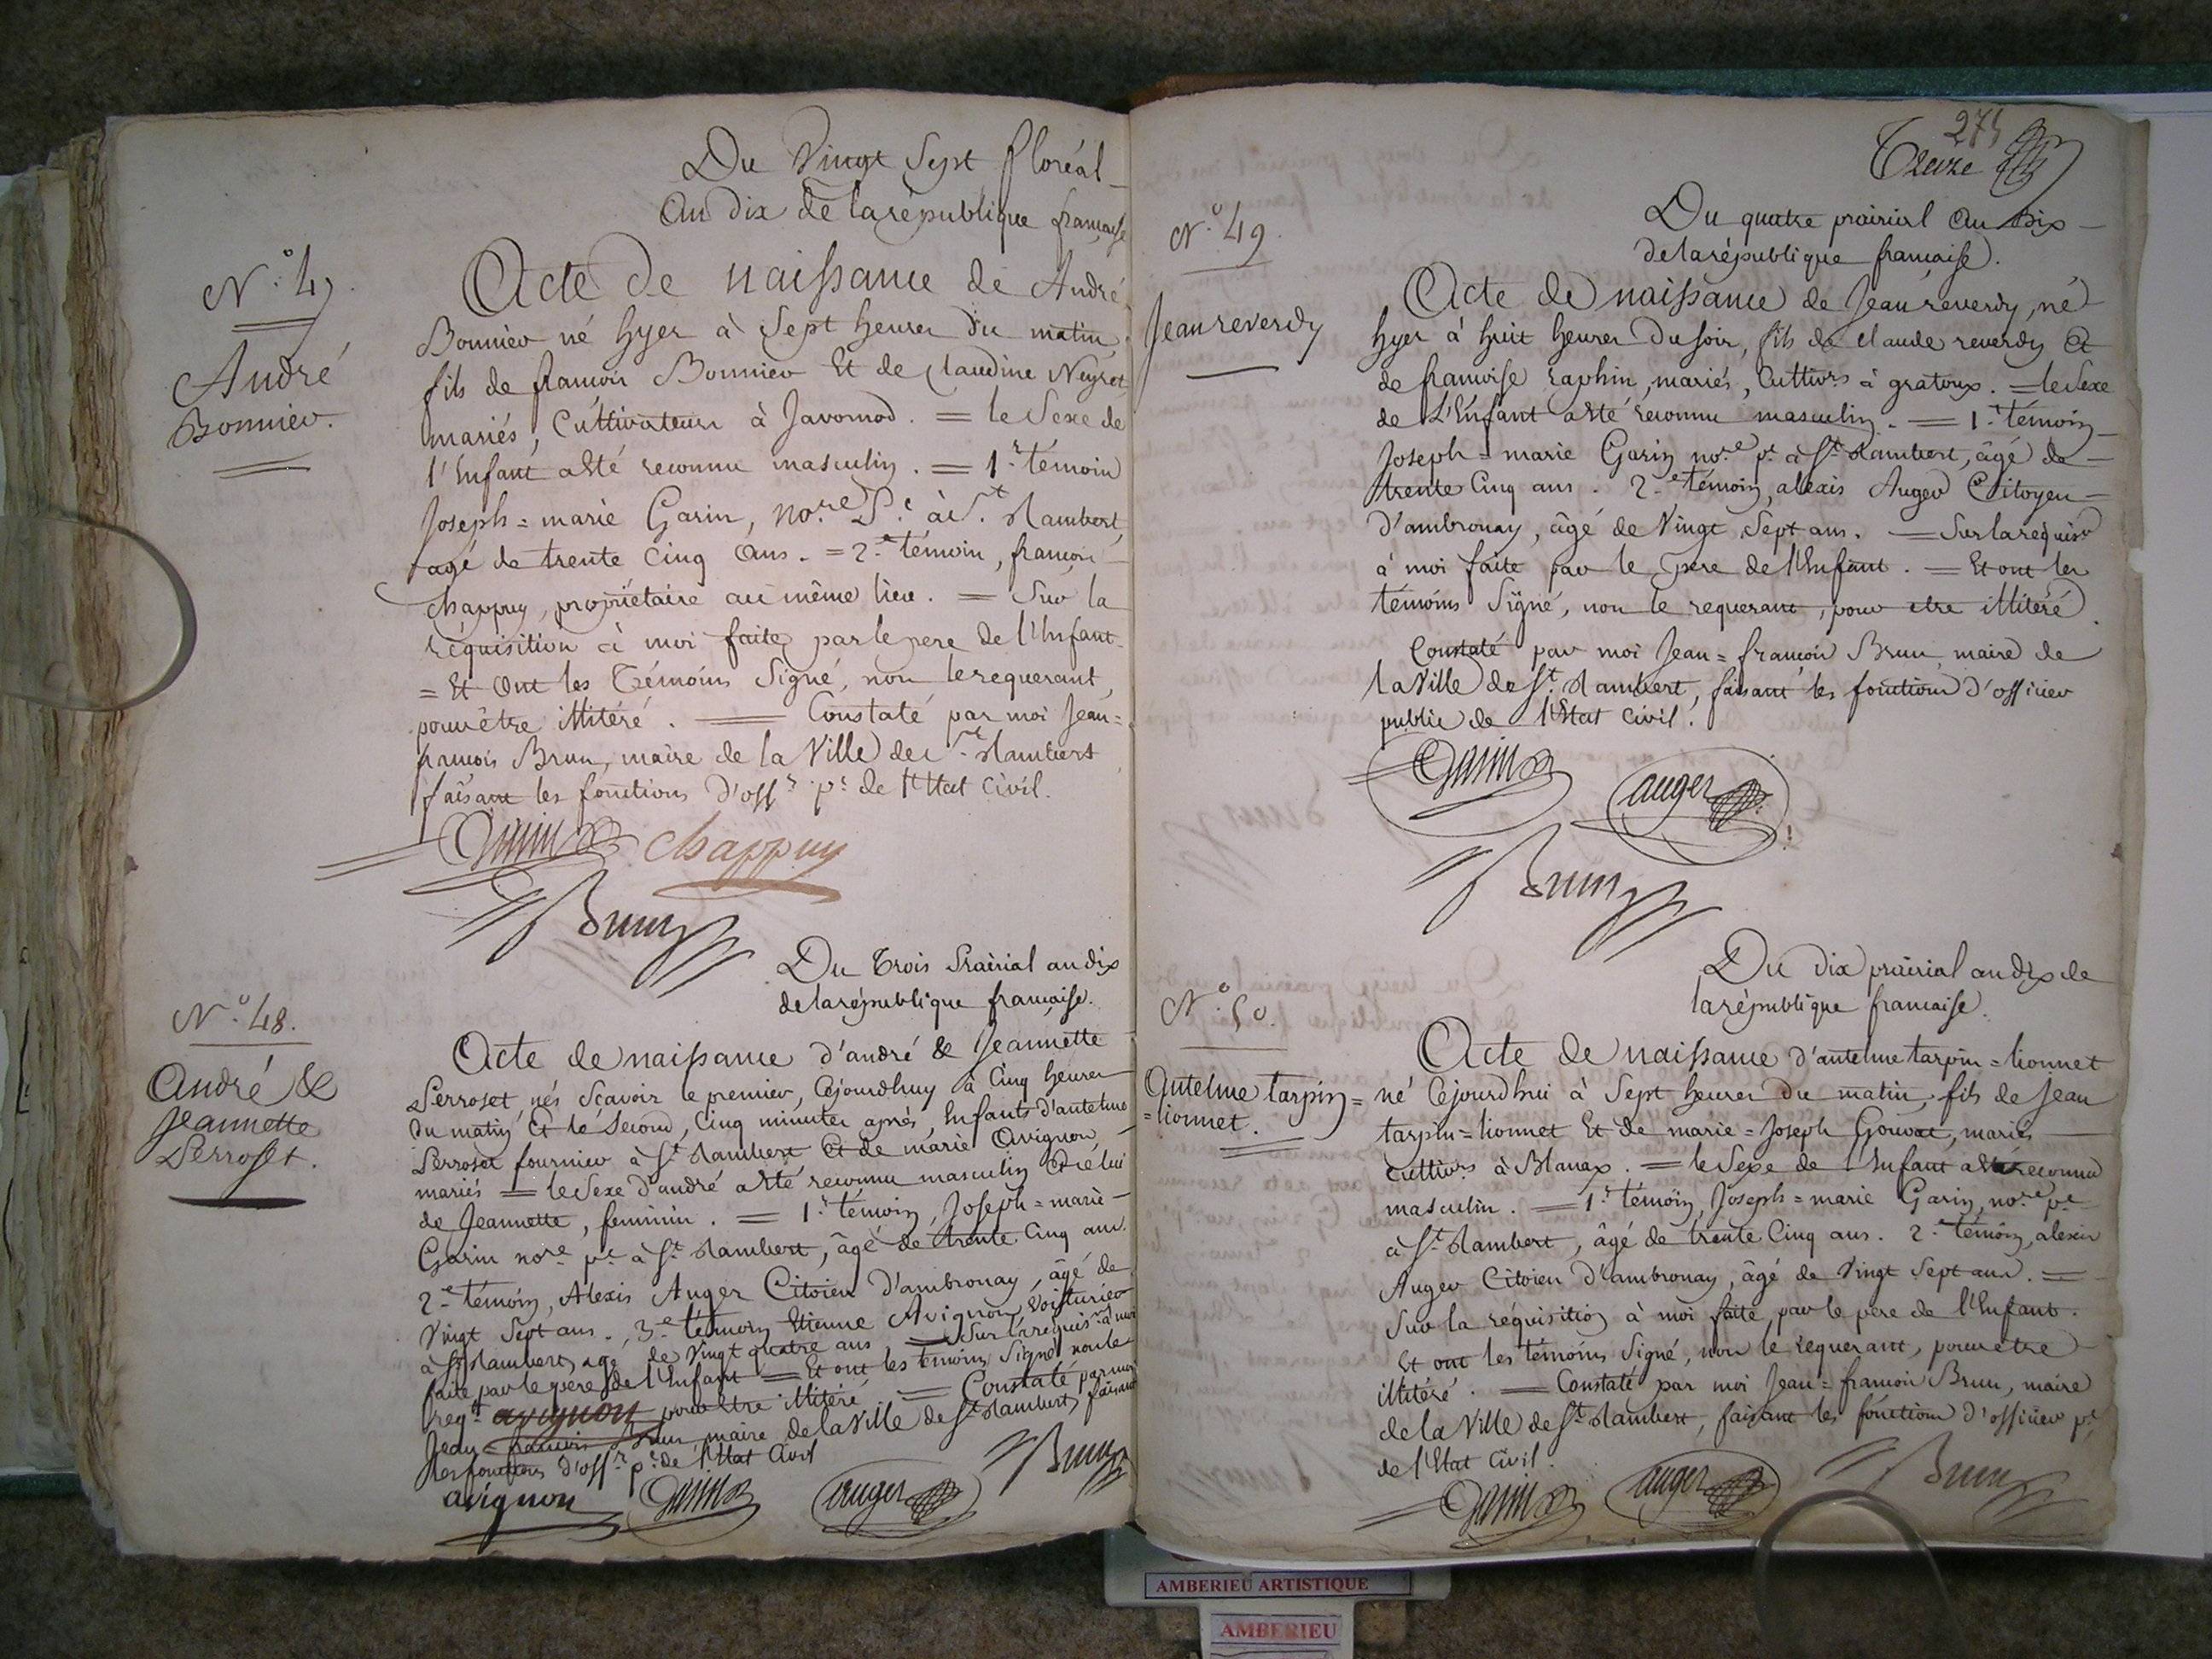 Du Vingt Sept floréal
an dix de la république française
N.º 47.
André
Bonnier.
Acte de naissance de André
Bonnier né hyer à Sept heures du matin,
fils de françois Bonnier Et de Claudine Neyret
mariés, Cultivateurs à Javornod. = le Sexe de
l'Enfant a Eté reconnu masculin. = 1.r témoin
Joseph = marie Garin, no.re P.c à S.t Rambert,
agé de trente Cinq ans. = 2.e témoin, françois
Chappuy, propriétaire au même lieu. = Sur la
réquisition à moi faite par le pere de l'Enfant
= Et Ont les Témoins Signé, non le requerant,
pour être illitéré. = Constaté par moi Jean =
françois Brun, maire de la Ville de S.t Rambert
faisant les fonctions d'off.r p.c de l'Etat Civil.
Garin Chappuy
Brun
Du Trois Prairial an dix
de la république française.
N.º 48.
André &
Jeannette
Perroset.
Acte de naissance d'andré & Jeannette
Perroset, nés Scavoir le premier, Cejourdhuy à Cinq heures
du matin Et le Second, Cinq minutes après, Enfants d'antelme
Perroset fournier à S.t Rambert Et de marie Avignon,
mariés = le Sexe d'andré a Eté reconnu masculin Et Celui
de Jeannette, feminin. = 1.r témoin, Joseph = marie
Garin no.re p.c à S.t Rambert, âgé de trente Cinq ans.
2.e témoin, Alexis Auger Citoien d'ambronay, âgé de
Vingt Sept ans. 3.e témoin Etienne Avignon Voiturier
à S.t Rambert, agé de Vingt quatre ans = Sur la requis.n à moi
faite par le pere de l'Enfant = Et ont les temoins Signé non le
req.t avignon pour Etre illitéré = Constaté par moi
Jean = françois Brun maire de la Ville de S.t Rambert, faisant
les fonctions d'off.r p.c de l'Etat Civil
avignon Garin auger Brun
274
Treize
N.º 49.
Jean reverdy
Du quatre prairial an Dix
de la république française.
Acte de naissance de Jean reverdy, né
hyer à huit heures du soir, fils de Claude reverdy Et
de françoise raphin, mariés, Cultiv.rs à gratoux. = le Sexe
de L'Enfant a été reconnu masculin. = 1.r témoin
Joseph = marie Garin no.re p.c à S.t Rambert, âgé de
trente Cinq ans. 2.e témoin, alexis Auger Citoyen
d'ambronay, âgé de Vingt Sept ans. = Sur la requis.on
à moi faite par le pere de l'Enfant. = Et ont les
témoins Signé, non le requerant, pour etre illitéré.
Constaté par moi Jean = françois Brun, maire de
la Ville de S.t Rambert, faisant les fonctions d'officier
public de l'Etat Civil.
Garin auger
Brun
Du dix prairial an dix de
la république française.
N.º 50.
Antelme tarpin =
= lionnet.
Acte de naissance d'antelme tarpin = lionnet
né Cejourd'hui à Sept heures du matin, fils de Jean
tarpin = lionnet Et de marie = Joseph Gouvat, mariés
Cultiv.rs à Blanax. = le Sexe de l'Enfant a Eté reconnu
masculin. = 1.r témoin, Joseph = marie Garin, no.re p.c
à S.t Rambert, âgé de trente Cinq ans. 2.e témoin, alexis
Auger Citoien d'ambronay, âgé de Vingt Sept ans. =
Sur la réquisition à moi faite, par le pere de l'Enfant.
Et ont les témoins Signé, non le requerant, pour etre
illitéré. = Constaté par moi Jean = françois Brun, maire
de la Ville de S.t Rambert, faisant les fonctions d'officier p.c
de l'Etat Civil.
Garin auger Brun
AMBERIEU ARTISTIQUE
AMBERIEU